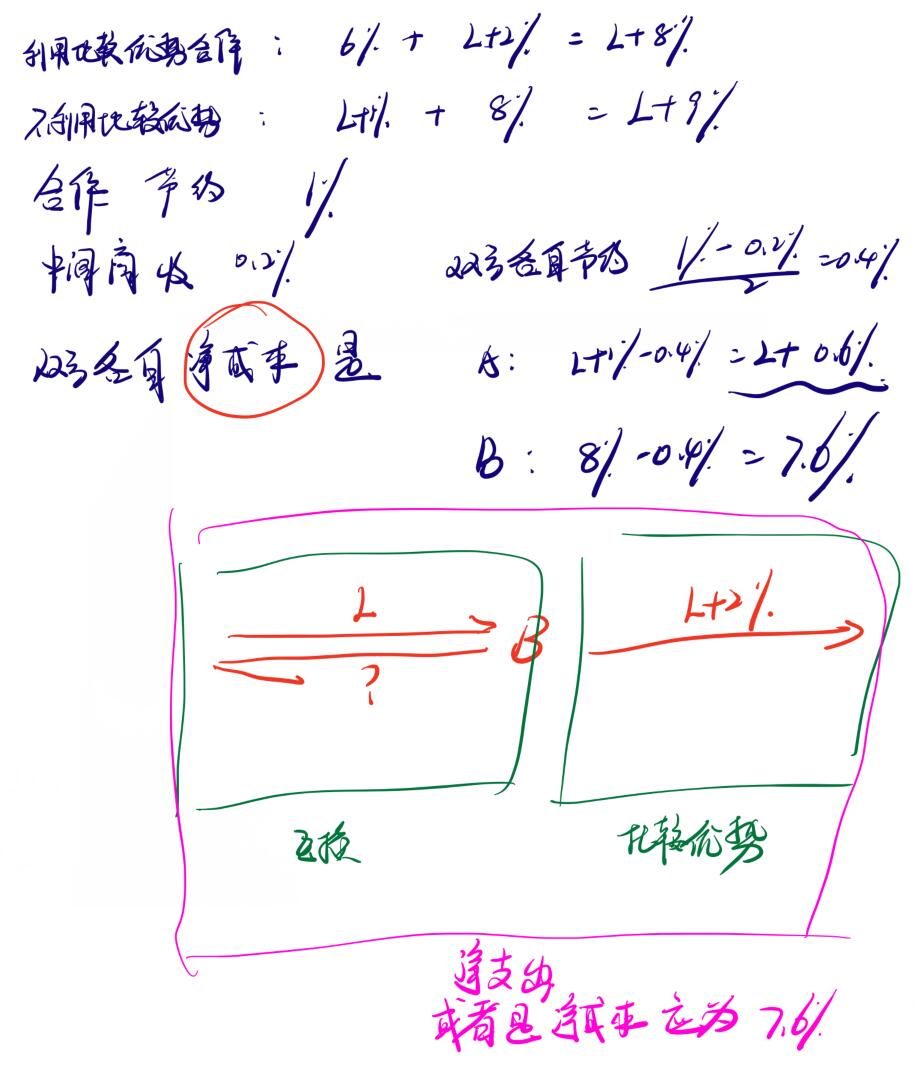 利用比较优势合作： 6% + L+2% = L+8%
不利用比较优势： L+1% + 8% = L+9%
合作 节约 1%
中间商收 0.2% 双方各自节约 1%-0.2%/2 =0.4%
双方各自净成本是 A: L+1%-0.4% = L+0.6%
B: 8%-0.4% = 7.6%
L L+2%
B
?
互换 比较优势
净支出
或者是净成本应为 7.6%